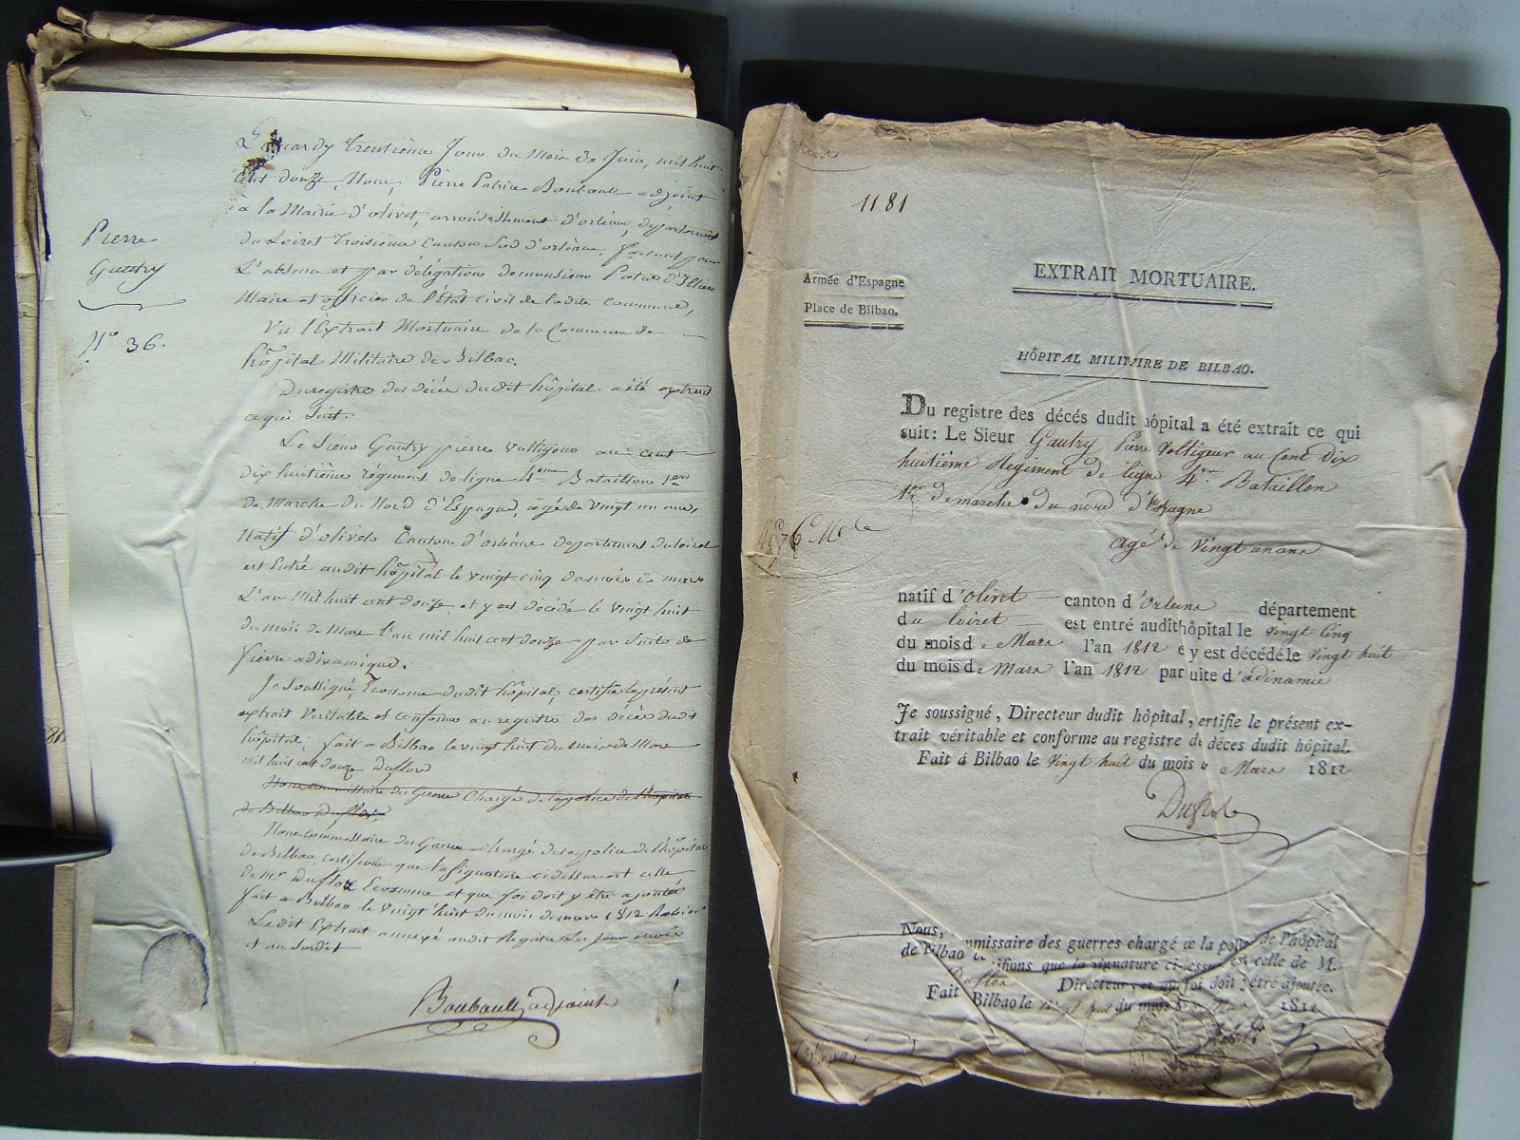 Pierre
Gautry
N.o 36.
trentième Jour du Mois de Juin, mil huit
cent douze, Nous, Pierre Patrice Boubault adjoint
à la Mairie d'olivet, arrondissement d'orléans, département
du Loiret troisième Canton Sud d'orléans. faisant pour
L'absence et par délégation de monsieur
Maire et officier de l'état civil de la dite commune,
Vu l'Extrait Mortuaire de la Commune de
hôpital Militaire de Bilbao.
Du registre des décès dudit hôpital a été extrait
ce qui suit.
Le Sieur Gautry pierre voltigeur au cent
dix huitième régiment de ligne 4eme Bataillon 1er
de Marche du Nord d'Espagne, agé de vingt un ans,
Natif d'olivet Canton d'orléans département du loiret
est entré audit hôpital le vingt cinq du mois de mars
L'an Mil huit cent douze et y est décédé le vingt huit
du mois de Mars l'an mil huit cent douze par suite de
fievre adinamique.
Je soussigné Econome dudit hôpital, certifie le présent
extrait Veritable et conforme au registre des décès dudit
hôpital; fait a Bilbao le vingt huit du mois de Mars
mil huit cent douze Duflos
Nous commissaire des Guerre Chargé de la police de l'hôpital
de Bilbao
Nous commissaire des Guerre chargé de la police de l'hôpital
de Bilbao certifions que la signature ci dessus est celle
de Mr Duflos Econome et que foi doit y être ajoutée
fait a Bilbao le vingt huit du mois de mars 1812
Le dit Extrait annexé audit Registre les jour mois
et an susdit
Boubault adjoint
1181
Armée d'Espagne
Place de Bilbao.
EXTRAIT MORTUAIRE.
HÔPITAL MILITAIRE DE BILBAO.
Du registre des décés dudit hôpital a été extrait ce qui
suit: Le Sieur Gautry Pierre Voltigeur au Cent dix
huitième Regiment de ligne 4me Bataillon
1er de marche du nord d'Espagne
agé de vingt un ans
natif d'olivet canton d'Orleans département
du loiret est entré audit hôpital le vingt cinq
du mois de Mars l'an 1812 et y est décédé le vingt huit
du mois de Mars l'an 1812 par suite d'adinamie
Je soussigné, Directeur dudit hôpital, certifie le présent ex-
trait véritable et conforme au registre de décès dudit hôpital.
Fait à Bilbao le vingt huit du mois de Mars 1812
Duflos
Nous, commissaire des guerres chargé de la police de l'hôpital
de Bilbao certifions que la signature ci-dessus est celle de M.
Duflos Directeur, et que foi doit y être ajoutée.
Fait à Bilbao le vingt huit du mois de Mars 1812